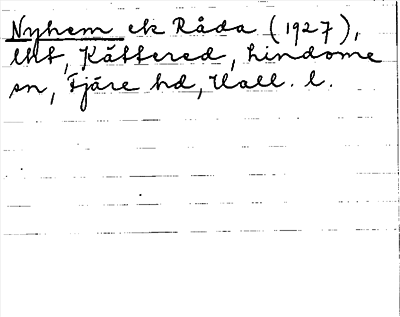 Nyhem ek Råda (1927),
lht, Kättered, Lindome
sn, Fjäre hd, Hall. l.